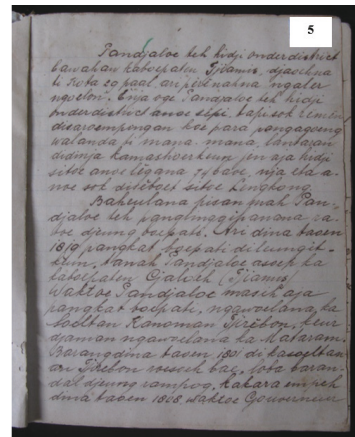 5
Pandjaloe teh hidji onderdistrict
bawahan kaboepaten Tjiamis, djaoehna
ti kota 20 paal, ari pernahna ngaler
ngoelon. Enja oge Pandjaloe teh hidji
onderdistrict anoe sepi, tapi sok remen
disaroempingan koe para pangagoeng
walanda ti mana-mana, lantaran
didinja kamashoerkeun jen aja hidji
sitoe anoe legana 74 baoe, nja eta a-
noe sok diseboet sitoe Lengkong.
Baheulana pisan mah Pan-
djaloe teh
boe djeung boepati. Ari dina taoen
1819 pangkat boepati dileungit-
keun, tanah Pandjaloe asoep ka
kaboepaten Galoeh (Tjiamis)
Waktoe Pandjaloe masih aja
pangkat boepati, ngawoelana ka
Soeltan Kanoman Tjirebon, keur
djaman ngawoelana ka Mataram.
Barang dina taoen 1801 di kasoeltan-
an Tjirebon roesoeh bae, loba baran-
dal djeung rampog, kakara empeh
dina taoen 1808 waktoe Gouverneur